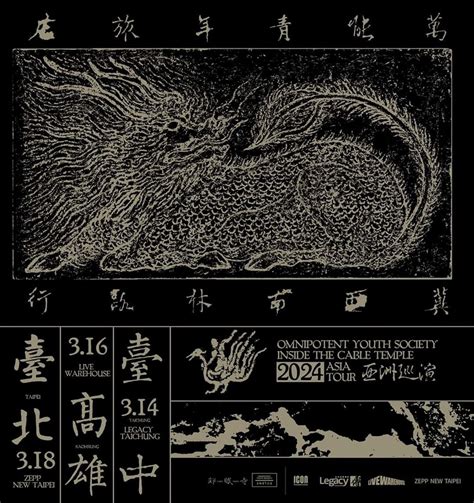 萬能青年旅店
冀西南林路行
臺
TAIPEI
北
3.18
ZEPP
NEW TAIPEI
3.16
LIVE
WAREHOUSE
高
KAOHSIUNG
雄
臺
TAICHUNG
3.14
LEGACY
TAICHUNG
中
OMNIPOTENT YOUTH SOCIETY
INSIDE THE CABLE TEMPLE
2024 ASIA TOUR 亞洲巡演
ICON
Legacy
LIVEWAREHOUSE
ZEPP NEW TAIPEI